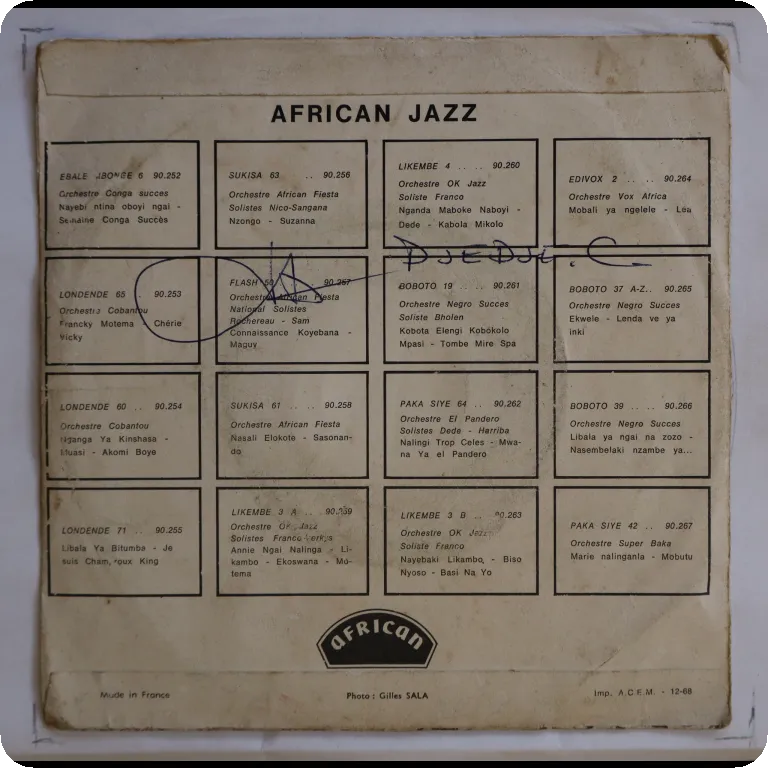 AFRICAN JAZZ
EBALE MBONGE 6 90.252
Orchestre Conga succes
Nayebi ntina oboyi ngai -
Semaine Conga Succès
SUKISA 63 .. 90.256
Orchestre African Fiesta
Solistes Nico-Sangana
Nzongo - Suzanna
LIKEMBE 4 .. .. 90.260
Orchestre OK Jazz
Soliste Franco
Nganda Maboke Naboyi -
Dede - Kabola Mikolo
EDIVOX 2 .. .. 90.264
Orchestre Vox Africa
Mobali ya ngelele - Lea
DJEDJE.C
LONDENDE 65 . 90.253
Orchestre Cobantou
Francky Motema - Chérie
Vicky
FLASH 50 90.257
Orchestre African Fiesta
National Solistes
Rochereau - Sam
Connaissance Koyebana -
Maguy
BOBOTO 19 .. .. 90.261
Orchestre Negro Succes
Soliste Bholen
Kobota Elengi Kobokolo
Mpasi - Tombe Mire Spa
BOBOTO 37 A-Z.. 90.265
Orchestre Negro Succes
Ekwele - Lenda ve ya
inki
LONDENDE 60 .. 90.254
Orchestre Cobantou
Nganga Ya Kinshasa -
Muasi - Akomi Boye
SUKISA 61 .. .. 90.258
Orchestre African Fiesta
Nasali Elokote - Sasonan-
do
PAKA SIYE 64 .. 90.262
Orchestre El Pandero
Solistes Dede - Harriba
Nalingi Trop Celes - Mwa-
na Ya el Pandero
BOBOTO 39 .. .. 90.266
Orchestre Negro Succes
Libala ya ngai na zozo -
Nasembelaki nzambe ya...
LONDENDE 71 .. 90.255
Libala Ya Bitumba - Je
suis Cham, roux King
LIKEMBE 3 A .. 90.259
Orchestre OK Jazz
Solistes Franco Verkys
Annie Ngai Nalinga - Li-
kambo - Ekoswana - Mo-
tema
LIKEMBE 3 B .. 90.263
Orchestre OK Jazz
Soliste Franco
Nayebaki Likambo, - Biso
Nyoso - Basi Na Yo
PAKA SIYE 42 .. 90.267
Orchestre Super Baka
Marie nalinganla - Mobutu
AFRICAN
Made in France
Photo : Gilles SALA
Imp. A.C.E.M. - 12-68